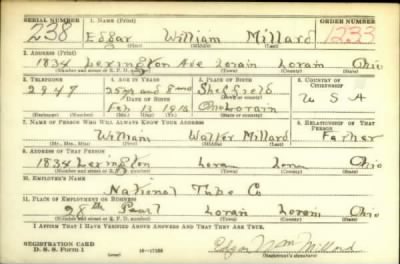 SERIAL NUMBER 1. NAME (Print) ORDER NUMBER
238 Edgar William Millard 1233
(First) (Middle) (Last)
2. ADDRESS (Print)
1834 Lexington Ave Lorain Lorain Ohio
(Number and street or R. F. D. number) (Town) (County) (State)
3. TELEPHONE 4. AGE IN YEARS 5. PLACE OF BIRTH 6. COUNTRY OF CITIZENSHIP
2948 25 yrs and 8 mo Sheffield
DATE OF BIRTH U S A
Feb 13 1915 Lorain
7. NAME OF PERSON WHO WILL ALWAYS KNOW YOUR ADDRESS 8. RELATIONSHIP OF THAT PERSON
William Walter Millard Father
(Mr., Mrs., Miss) (First) (Middle) (Last)
9. ADDRESS OF THAT PERSON
1834 Lexington Lorain Lorain Ohio
(Number and street or R. F. D. number) (Town) (County) (State)
10. EMPLOYER'S NAME
National Tube Co
11. PLACE OF EMPLOYMENT OR BUSINESS
28th Pearl Lorain Lorain Ohio
(Number and street or R. F. D. number) (Town) (County) (State)
I AFFIRM THAT I HAVE VERIFIED ABOVE ANSWERS AND THAT THEY ARE TRUE.
REGISTRATION CARD
D. S. S. Form 1 (over) Edgar Wm Millard
(Registrant's signature)